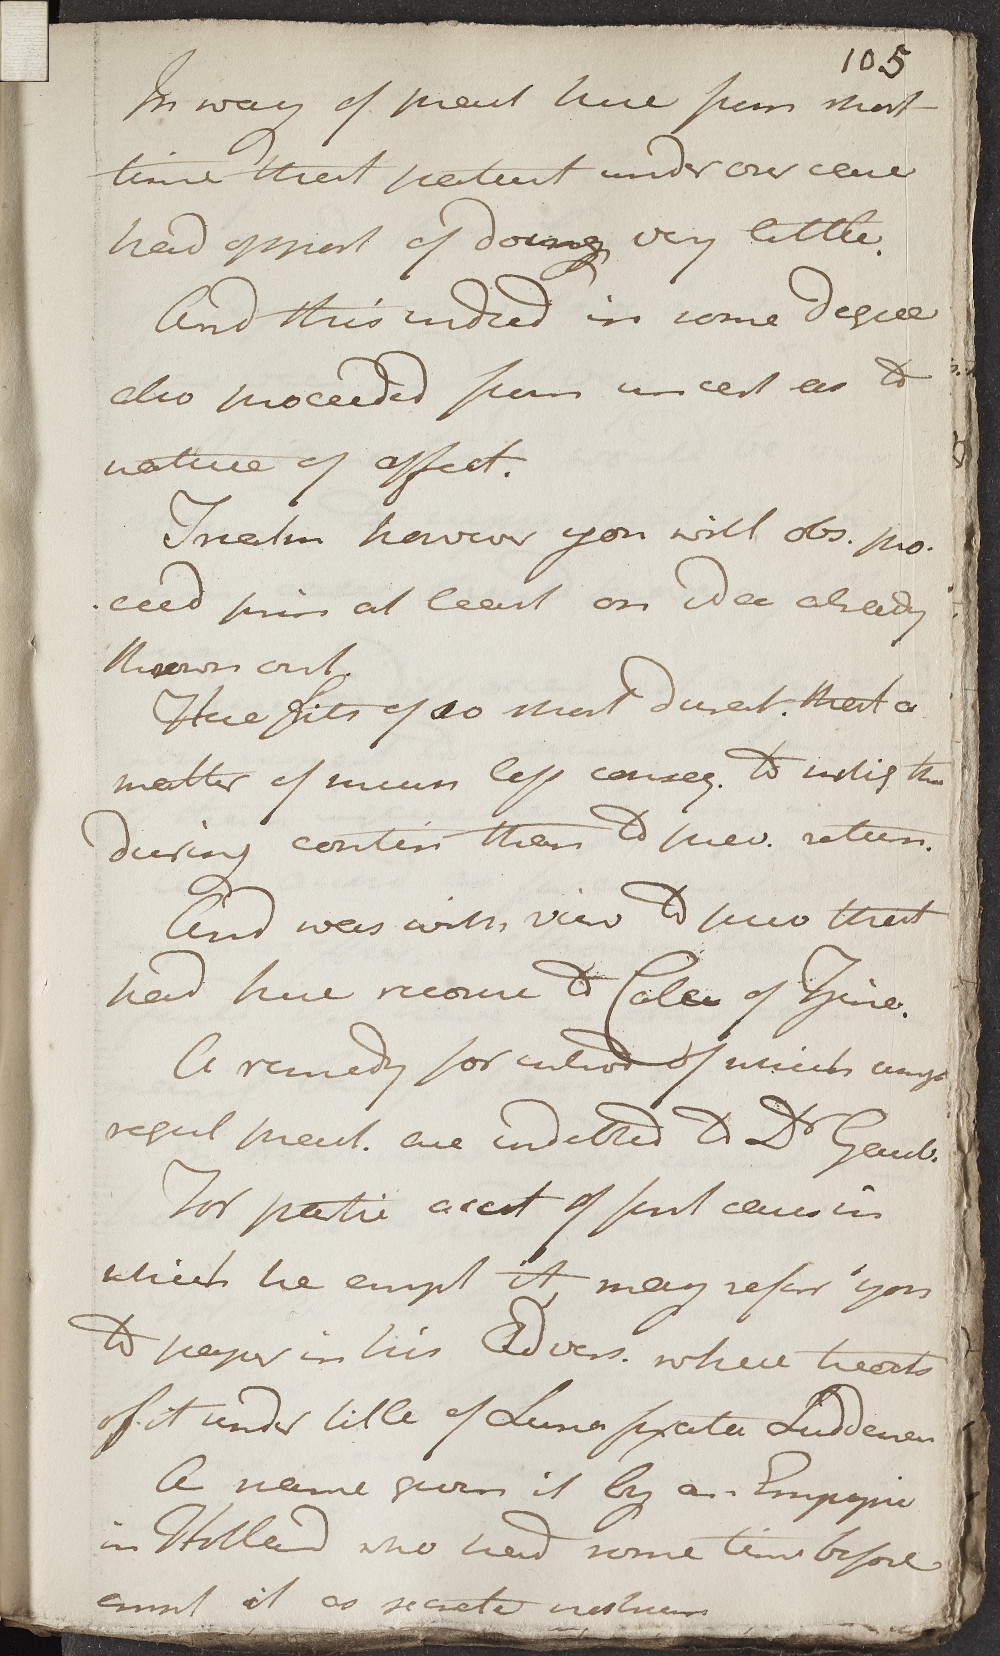 105
In way of pract here from short
time that patient under our care
had opport of doing very little.
And this indeed in some degree
also proceeded from uncert as to
nature of affect.
Treatm however you will obs. pro-
-ceed from at least on idea already
thrown out.
Here fits of so short durat. that a
matter of much less conseq. to mitig them
during contin than to prev. return.
And was with view to prev that
had here recourse to Calx of Zinc.
A remedy for introd of which among
regul pract. are indebted to Dr Gaub.
For partic acct of sevl cases in
which he empl it, may refer you
to paper in his Advers. where treats
of it under title of Luna fixata Luddeman
A name given it by an Empyric
in Holland who had some time before
empl it as secrete nostrum